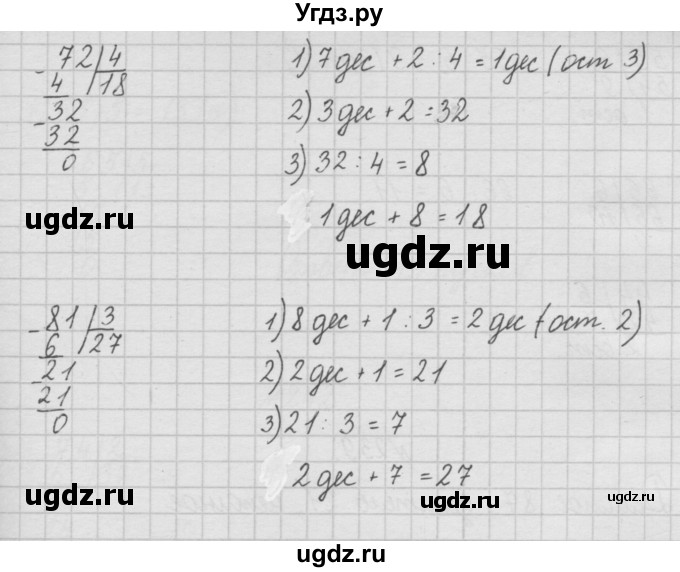 Угдз.ру
72 | 4
4 | 18
32
32
0
1) 7 дес + 2 : 4 = 1 дес (ост 3)
2) 3 дес + 2 = 32
3) 32 : 4 = 8
1 дес + 8 = 18
ugdz.ru
ugdz.ru
81 | 3
6 | 27
21
21
0
1) 8 дес + 1 : 3 = 2 дес (ост. 2)
2) 2 дес + 1 = 21
3) 21 : 3 = 7
2 дес + 7 = 27
ugdz.ru
ugdz.ru
ugdz.ru
ugdz.ru